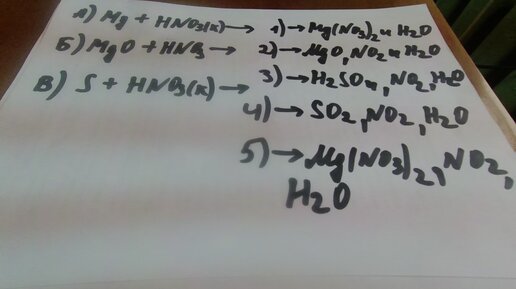 А) Mg + HNO3(к) → 1) → Mg(NO3)2 и H2O
Б) MgO + HNO3 → 2) → MgO, NO2 и H2O
В) S + HNO3(к) → 3) → H2SO4, NO2, H2O
4) → SO2, NO2, H2O
5) → Mg(NO3)2, NO2,
H2O